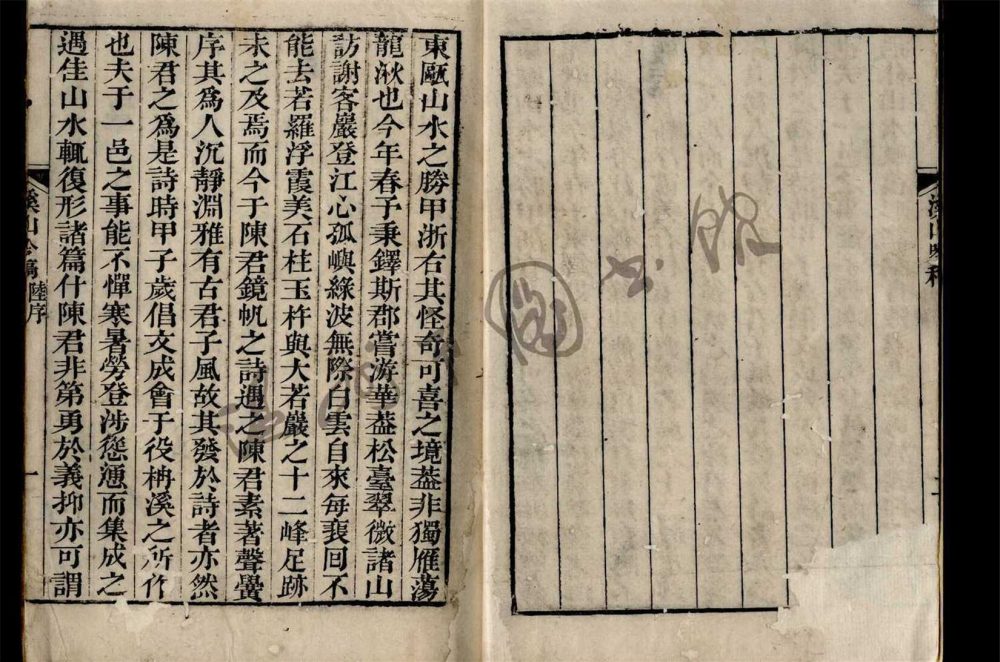 東甌山水之勝甲浙右其怪奇可喜之境葢非獨雁蕩
龍湫也今年春予秉鐸斯郡嘗游華葢松臺翠微諸山
訪謝客巖登江心孤嶼綠波無際白雲自來每裴囘不
能去若羅浮霞美石柱玉杵與大若巖之十二峰足跡
未之及焉而今于陳君鏡帆之詩遇之陳君素著聲黌
序其爲人沉靜淵雅有古君子風故其發於詩者亦然
陳君之爲是詩時甲子歲倡文成會于役枬溪之所作
也夫于一邑之事能不憚寒暑勞登涉慫慂而集成之
遇佳山水輒復形諸篇什陳君非第勇於義抑亦可謂
溪山吟稿 陸序
一
溪山吟稿
圖書館